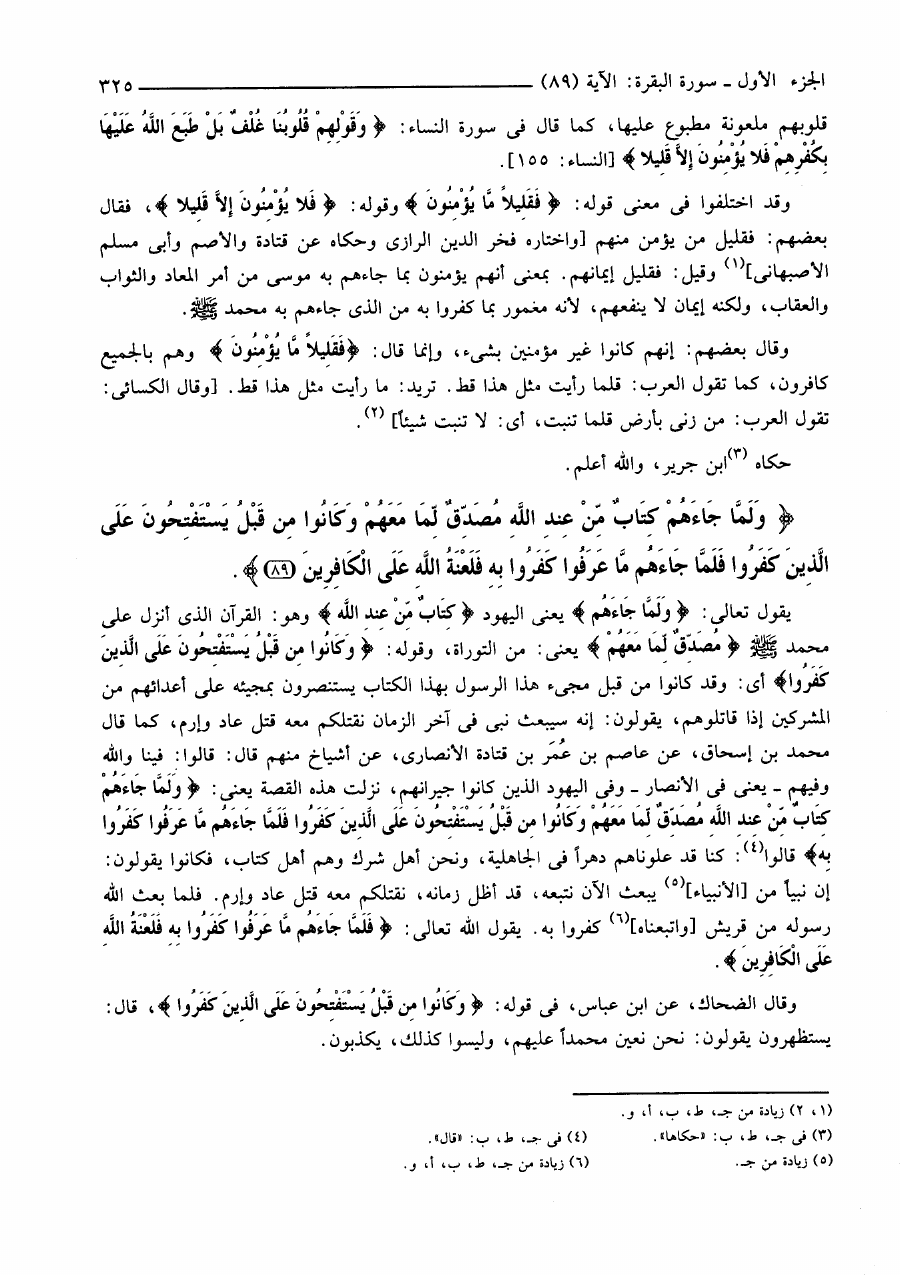 الجزء الأول ـ سورة البقرة: الآية (٨٩) ــــــــــــــــــــــــــــــــــــــــ ٣٢٥
قلوبهم ملعونة مطبوع عليها، كما قال فى سورة النساء: ﴿ وَقَوْلِهِمْ قُلُوبُنَا غُلْفٌ بَلْ طَبَعَ اللَّهُ عَلَيْهَا
بِكُفْرِهِمْ فَلا يُؤْمِنُونَ إِلاَّ قَلِيلا ﴾ [النساء: ١٥٥].
وقد اختلفوا فى معنى قوله: ﴿ فَقَلِيلاً مَّا يُؤْمِنُونَ ﴾ وقوله: ﴿ فَلا يُؤْمِنُونَ إِلاَّ قَلِيلا ﴾، فقال
بعضهم: فقليل من يؤمن منهم [واختاره فخر الدين الرازى وحكاه عن قتادة والأصم وأبى مسلم
الأصبهانى](١) وقيل: فقليل إيمانهم. بمعنى أنهم يؤمنون بما جاءهم به موسى من أمر المعاد والثواب
والعقاب، ولكنه إيمان لا ينفعهم، لأنه مغمور بما كفروا به من الذى جاءهم به محمد ﷺ.
وقال بعضهم: إنهم كانوا غير مؤمنين بشىء، وإنما قال: ﴿فَقَلِيلاً مَّا يُؤْمِنُونَ ﴾ وهم بالجميع
كافرون، كما تقول العرب: قلما رأيت مثل هذا قط. تريد: ما رأيت مثل هذا قط. [وقال الكسائى:
تقول العرب: من زنى بأرض قلما تنبت، أى: لا تنبت شيئاً](٢).
حكاه (٣)ابن جرير، والله أعلم.
﴿ وَلَمَّا جَاءَهُمْ كِتَابٌ مِّنْ عِندِ اللَّهِ مُصَدِّقٌ لِّمَا مَعَهُمْ وَكَانُوا مِن قَبْلُ يَسْتَفْتِحُونَ عَلَى
الَّذِينَ كَفَرُوا فَلَمَّا جَاءَهُم مَّا عَرَفُوا كَفَرُوا بِهِ فَلَعْنَةُ اللَّهِ عَلَى الْكَافِرِينَ (٨٩) ﴾.
يقول تعالى: ﴿ وَلَمَّا جَاءَهُم ﴾ يعنى اليهود ﴿ كِتَابٌ مِّنْ عِندِ اللَّهِ ﴾ وهو: القرآن الذى أنزل على
محمد ﷺ ﴿ مُصَدِّقٌ لِّمَا مَعَهُمْ ﴾ يعنى: من التوراة، وقوله: ﴿ وَكَانُوا مِن قَبْلُ يَسْتَفْتِحُونَ عَلَى الَّذِينَ
كَفَرُوا﴾ أى: وقد كانوا من قبل مجىء هذا الرسول بهذا الكتاب يستنصرون بمجيئه على أعدائهم من
المشركين إذا قاتلوهم، يقولون: إنه سيبعث نبى فى آخر الزمان نقتلكم معه قتل عاد وإرم، كما قال
محمد بن إسحاق، عن عاصم بن عُمَر بن قتادة الأنصارى، عن أشياخ منهم قال: قالوا: فينا والله
وفيهم ـ يعنى فى الأنصار ـ وفى اليهود الذين كانوا جيرانهم، نزلت هذه القصة يعنى: ﴿ وَلَمَّا جَاءَهُمْ
كِتَابٌ مِّنْ عِندِ اللَّهِ مُصَدِّقٌ لِّمَا مَعَهُمْ وَكَانُوا مِن قَبْلُ يَسْتَفْتِحُونَ عَلَى الَّذِينَ كَفَرُوا فَلَمَّا جَاءَهُم مَّا عَرَفُوا كَفَرُوا
بِهِ﴾ قالوا(٤): كنا قد علوناهم دهراً فى الجاهلية، ونحن أهل شرك وهم أهل كتاب، فكانوا يقولون:
إن نبياً من [الأنبياء](٥) يبعث الآن نتبعه، قد أظل زمانه، نقتلكم معه قتل عاد وإرم. فلما بعث الله
رسوله من قريش [واتبعناه](٦) كفروا به. يقول الله تعالى: ﴿ فَلَمَّا جَاءَهُم مَّا عَرَفُوا كَفَرُوا بِهِ فَلَعْنَةُ اللَّهِ
عَلَى الْكَافِرِينَ ﴾.
وقال الضحاك، عن ابن عباس، فى قوله: ﴿ وَكَانُوا مِن قَبْلُ يَسْتَفْتِحُونَ عَلَى الَّذِينَ كَفَرُوا ﴾، قال:
يستظهرون يقولون: نحن نعين محمداً عليهم، وليسوا كذلك، يكذبون.
(١، ٢) زيادة من جـ، ط، ب، أ، و.
(٣) فى جـ، ط، ب: «حكاها». (٤) فى جـ، ط، ب: «قال».
(٥) زيادة من جـ. (٦) زيادة من جـ، ط، ب، أ، و.